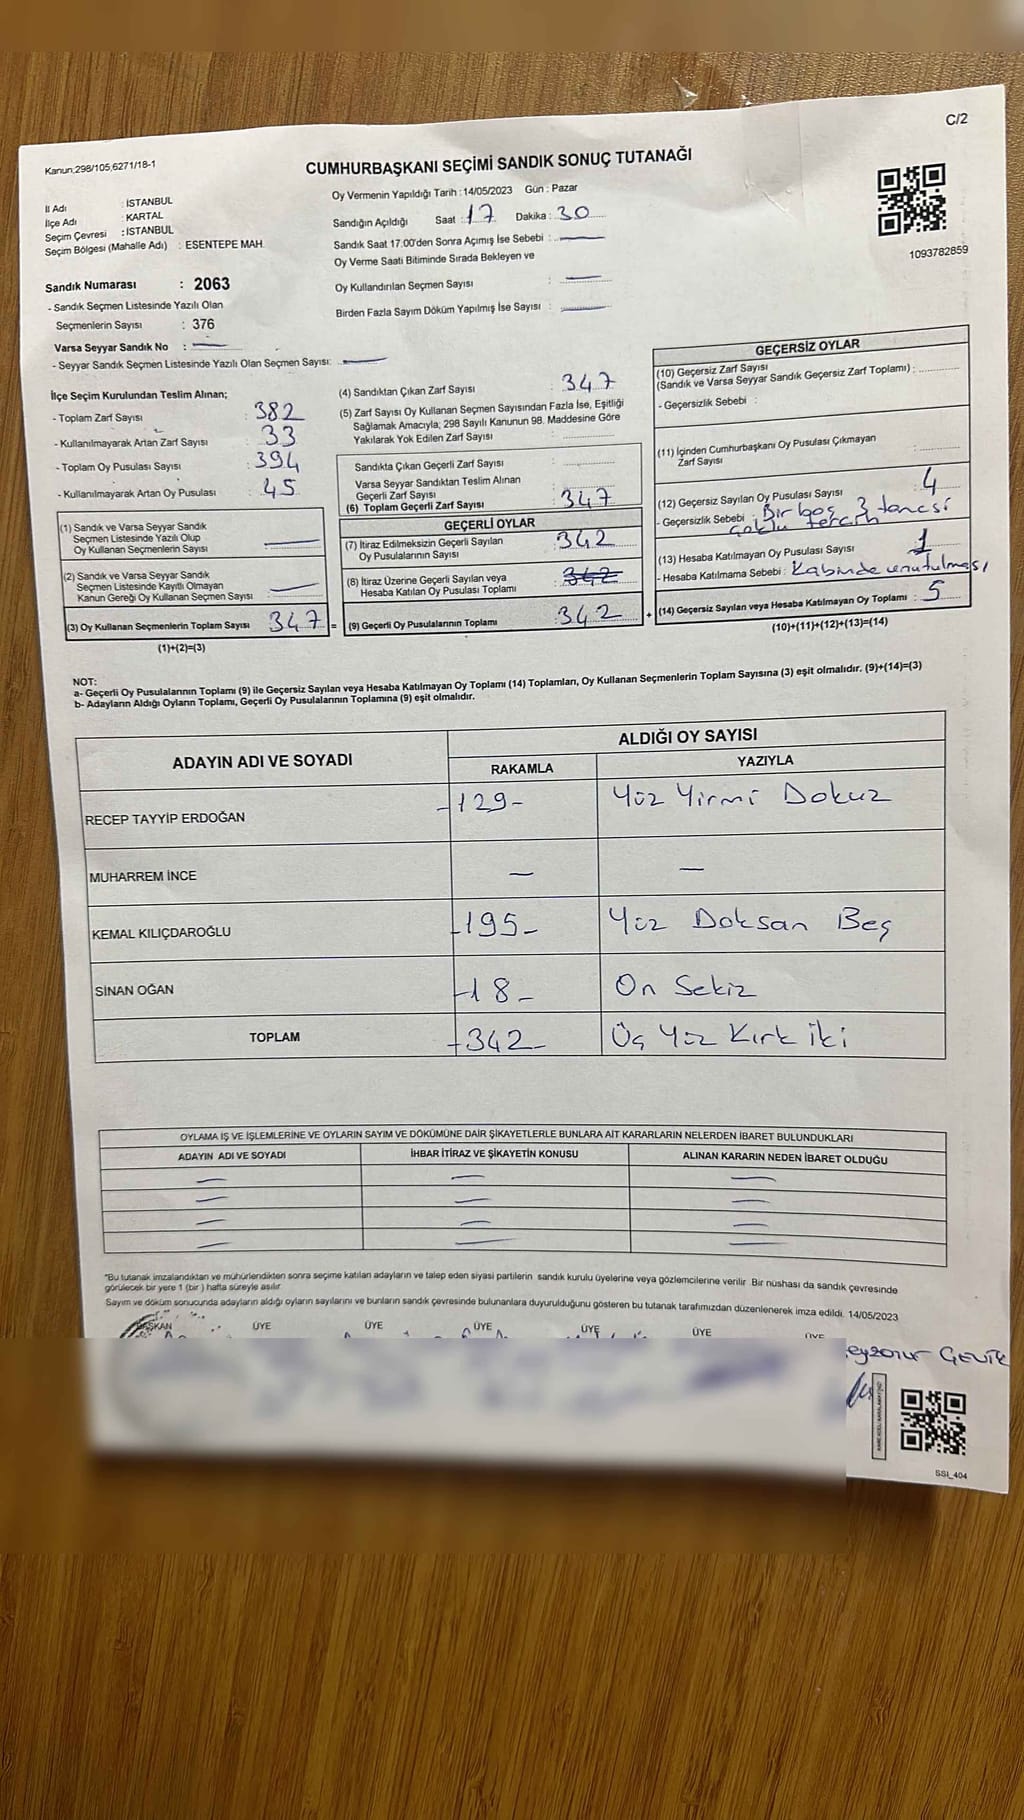 C/2
Kanun;298/105,6271/18-1
CUMHURBAŞKANI SEÇİMİ SANDIK SONUÇ TUTANAĞI
İl Adı : İSTANBUL
İlçe Adı : KARTAL
Seçim Çevresi : İSTANBUL
Seçim Bölgesi (Mahalle Adı) : ESENTEPE MAH.
Oy Vermenin Yapıldığı Tarih : 14/05/2023 Gün : Pazar
Sandığın Açıldığı Saat : 17 Dakika : 30
Sandık Saat 17:00'den Sonra Açımış İse Sebebi :
Oy Verme Saati Bitiminde Sırada Bekleyen ve
Oy Kullandırılan Seçmen Sayısı :
Birden Fazla Sayım Döküm Yapılmış İse Sayısı :
1093782859
Sandık Numarası : 2063
- Sandık Seçmen Listesinde Yazılı Olan
Seçmenlerin Sayısı : 376
Varsa Seyyar Sandık No : —
- Seyyar Sandık Seçmen Listesinde Yazılı Olan Seçmen Sayısı: —
İlçe Seçim Kurulundan Teslim Alınan;
- Toplam Zarf Sayısı : 382
- Kullanılmayarak Artan Zarf Sayısı : 33
- Toplam Oy Pusulası Sayısı : 394
- Kullanılmayarak Artan Oy Pusulası : 45
(1) Sandık ve Varsa Seyyar Sandık
Seçmen Listesinde Yazılı Olup
Oy Kullanan Seçmenlerin Sayısı —
(2) Sandık ve Varsa Seyyar Sandık
Seçmen Listesinde Kayıtlı Olmayan
Kanun Gereği Oy Kullanan Seçmen Sayısı —
(3) Oy Kullanan Seçmenlerin Toplam Sayısı 347 =
(1)+(2)=(3)
(4) Sandıktan Çıkan Zarf Sayısı : 347
(5) Zarf Sayısı Oy Kullanan Seçmen Sayısından Fazla İse, Eşitliği
Sağlamak Amacıyla; 298 Sayılı Kanunun 98. Maddesine Göre
Yakılarak Yok Edilen Zarf Sayısı
Sandıkta Çıkan Geçerli Zarf Sayısı :
Varsa Seyyar Sandıktan Teslim Alınan
Geçerli Zarf Sayısı :
(6) Toplam Geçerli Zarf Sayısı : 347
GEÇERLİ OYLAR
(7) İtiraz Edilmeksizin Geçerli Sayılan
Oy Pusulalarının Sayısı : 342
(8) İtiraz Üzerine Geçerli Sayılan veya
Hesaba Katılan Oy Pusulası Toplamı : 342
(9) Geçerli Oy Pusulalarının Toplamı : 342 +
GEÇERSİZ OYLAR
(10) Geçersiz Zarf Sayısı
(Sandık ve Varsa Seyyar Sandık Geçersiz Zarf Toplamı) :
- Geçersizlik Sebebi :
(11) İçinden Cumhurbaşkanı Oy Pusulası Çıkmayan
Zarf Sayısı :
(12) Geçersiz Sayılan Oy Pusulası Sayısı : 4
- Geçersizlik Sebebi : Bir boş 3 tanesi
çoklu tercih
(13) Hesaba Katılmayan Oy Pusulası Sayısı : 1
- Hesaba Katılmama Sebebi : Kabinde unutulması
(14) Geçersiz Sayılan veya Hesaba Katılmayan Oy Toplamı : 5
(10)+(11)+(12)+(13)=(14)
NOT:
a- Geçerli Oy Pusulalarının Toplamı (9) ile Geçersiz Sayılan veya Hesaba Katılmayan Oy Toplamı (14) Toplamları, Oy Kullanan Seçmenlerin Toplam Sayısına (3) eşit olmalıdır. (9)+(14)=(3)
b- Adayların Aldığı Oyların Toplamı, Geçerli Oy Pusulalarının Toplamına (9) eşit olmalıdır.
ADAYIN ADI VE SOYADI
ALDIĞI OY SAYISI
RAKAMLA YAZIYLA
RECEP TAYYİP ERDOĞAN -129- Yüz Yirmi Dokuz
MUHARREM İNCE — —
KEMAL KILIÇDAROĞLU -195- Yüz Doksan Beş
SİNAN OĞAN -18- On Sekiz
TOPLAM -342- Üç Yüz Kırk İki
OYLAMA İŞ VE İŞLEMLERİNE VE OYLARIN SAYIM VE DÖKÜMÜNE DAİR ŞİKAYETLERLE BUNLARA AİT KARARLARIN NELERDEN İBARET BULUNDUKLARI
ADAYIN ADI VE SOYADI İHBAR İTİRAZ VE ŞİKAYETİN KONUSU ALINAN KARARIN NEDEN İBARET OLDUĞU
*Bu tutanak imzalandıktan ve mühürlendikten sonra seçime katılan adayların ve talep eden siyasi partilerin sandık kurulu üyelerine veya gözlemcilerine verilir. Bir nüshası da sandık çevresinde
görülecek bir yere 1 (bir) hafta süreyle asılır.
Sayım ve döküm sonucunda adayların aldığı oyların sayılarını ve bunların sandık çevresinde bulunanlara duyurulduğunu gösteren bu tutanak tarafımızdan düzenlenerek imza edildi. 14/05/2023
BAŞKAN ÜYE ÜYE ÜYE ÜYE ÜYE ÜYE
SSI_404